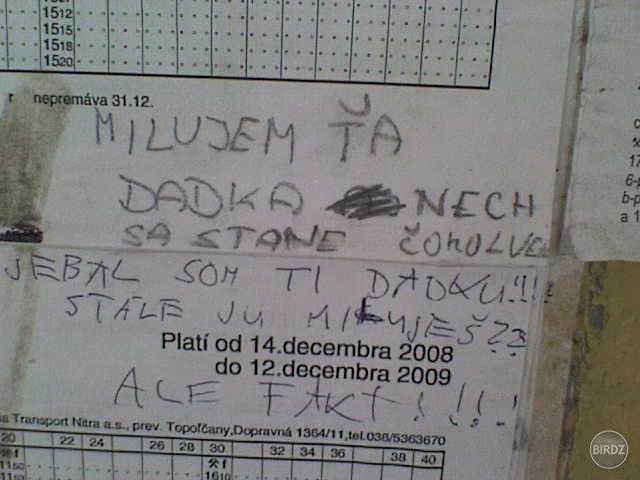 1512
1515
1518
1520
r nepremáva 31.12.
MILUJEM ŤA
DADKA NECH
SA STANE ČOKOLVE
JEBAL SOM TI DADKU!!!!
STÁLE JU MILUJEŠ??
Platí od 14.decembra 2008
do 12.decembra 2009
ALE FAKT!!!!
sa Transport Nitra a.s., prev. Topoľčany,Dopravná 1364/11,tel.038/5363670
20 22 24 26 28 30 32 34 36 38 40
1150 1610
17
6-
b-p
a 1
BIRDZ